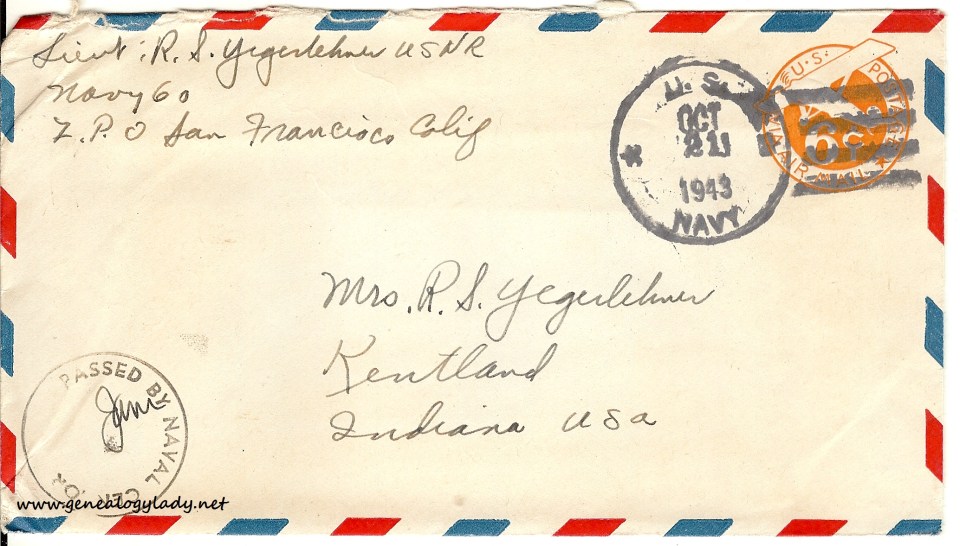 Lieut: R. S. Yegerlehner USNR
Navy 60
F.P.O San Francisco Calif
U.S.
OCT
21
1943
NAVY
U.S. POSTAGE
VIA AIR MAIL
6¢
Mrs. R. S. Yegerlehner
Kentland
Indiana USA
PASSED BY NAVAL CENSOR
www.genealogylady.net